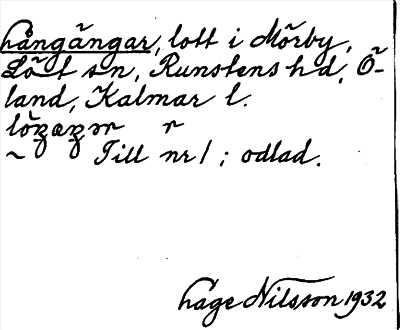 Långängar, lott i Mörby,
Löt sn, Runstens hd, Ö-
land, Kalmar l.
~ Till nr 1; odlad.
Hage Nilsson 1932